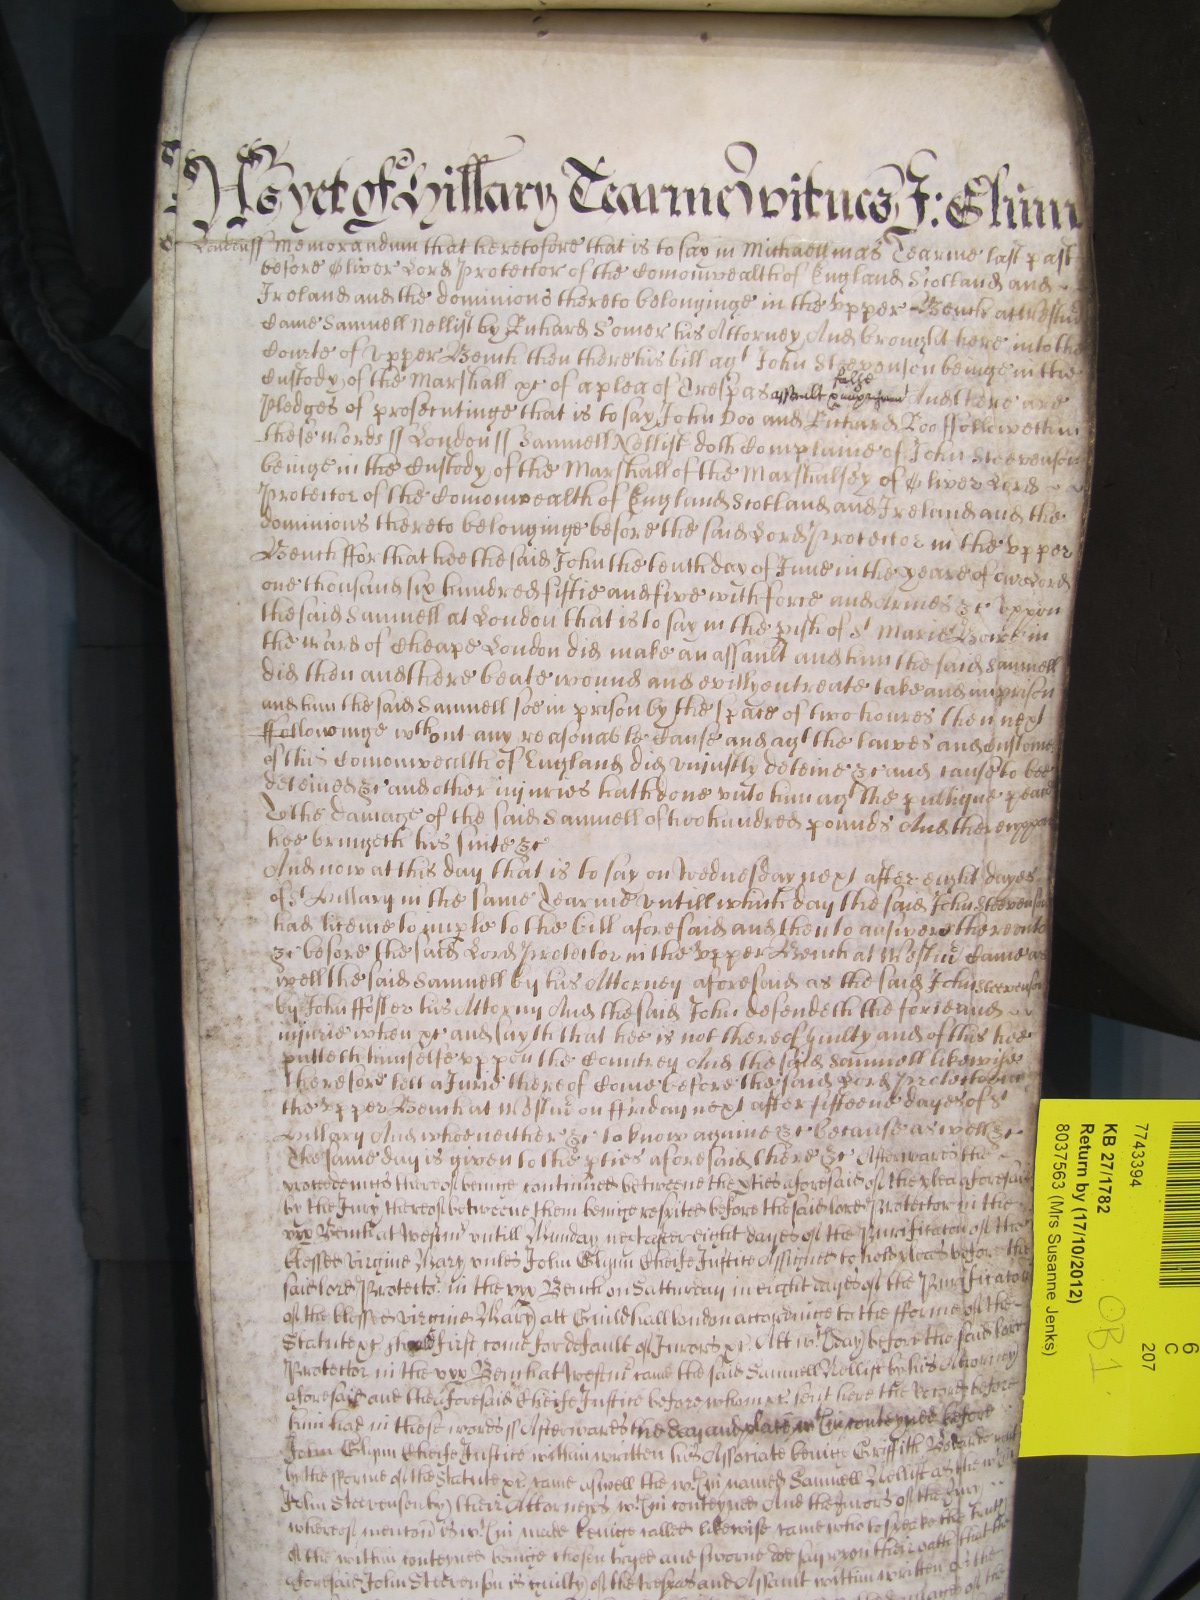 As yet of Hillary Tearme witnes J: Glynn
London ss Memorandum that heretofore that is to say in Michaellmas Tearme last past
before Oliver Lord Protector of the Comonwealth of England Scotland and
Ireland and the dominions thereto belonginge in the Vpper Bench at Westmr
Came Samuell Nellist by Richard Somer his Attorney And brought here into the
Courte of Vpper Bench then there his bill agt John Steevenson beinge in the
Custody of the Marshall &c of a plea of Trespas assault false And there are
Pledges of prosecutinge that is to say John Doo and Richard Roo ffolloweth in
these words ss London ss Samuell Nellist doth Complaine of John Steevenson
beinge in the Custody of the Marshall of the Marshalsey of Oliver Lord
Protector of the Comonwealth of England Scotland and Ireland and the
dominions thereto belonginge before the said Lord Protector in the Vpper
Bench ffor that hee the said John the tenth day of June in the yeare of owr Lord
one thousand six hundred fiftie and five with force and Armes &c vppon
the said Samuell at London that is to say in the pish of St Marie Bowe in
the Ward of Cheape London did make an assault and him the said Samuell
did then and there beate wound and evilly entreate take and imprison
and him the said Samuell soe in prison by the space of two houres then next
ffollowinge wthout any reasonable Cause and agt the lawes and customes
of this Comonwealth of England did uniustly deteine &c and cause to bee
deteined &c and other iniuries hath done vnto him agt the publique peace
To the damage of the said Samuell of two hundred pounds And therevppon
hee bringeth his suite &c
And now at this day that is to say on Wednesday next after eight dayes
of St Hillary in the same Tearme untill which day the said John Steevenson
had licence to imple to the bill aforesaid and then to answere therevnto
&c before the said Lord Protector in the Vpper Bench at Westmr Came as
well the said Samuell by his Attorney aforesaid as the said John Steevenson
by John ffoster his Attorny And the said John defendeth the force and
iniurie when &c and sayth that hee is not thereof guilty and of this hee
putteth himselfe vppon the Countrey And the said Samuell likewise
Therefore lett a Jurie thereof Come before the said Lord Protector in
the Vpper Bench at Westmr on ffriday next after fifteene dayes of St
Hillary And who neither &c to know againe &c because as well &c
The same day is given to the pties aforesaid there &c Afterwards the
proceedings thereof beinge continued betweene the pties aforesaid of the plea aforesaid
by the Jury thereof betweene them beinge respited before the said lord Protector in the
vpp Bench at Westm untill Munday next after eight dayes of the Purificaton of the
blessed virgine Mary unles John Glynn Cheife Justice Assigned to hold pleas before the
said lord Protector in the vpp Bench on Satturday in eight dayes of the Purificaton
of the blessed virgine Mary att Guildhall London accordinge to the fforme of the
Statute &c should first come for default of Jurors &c. Att wch day before the said lord
Protector in the vpp Bench at Westm came the said Samuell Nellist by his Attorney
aforesaid and the aforesaid Cheife Justice before whom &c sent here the Record before
him had in these words ss Afterwards the day and place wthin conteyned before
John Glynn Cheife Justice within written his Associate beinge Griffith
by the fforme of the Statute &c came aswell the wthin named Samuell Nellist as the wthin
John Steevenson by their Attorneyes wthin conteyned And the Jurors of the Jury
whereof mencon is wthin made beinge called likewise came who to speake the truth
of the within conteyned beinge chosen tryed and sworne doe say vpon their oath that the
aforesaid John Steevenson is guilty of the trespas and Assault within written
7743394
6
C
207
KB 27/1782
Return by (17/10/2012)
8037563 (Mrs Susanne Jenks)
OB 1